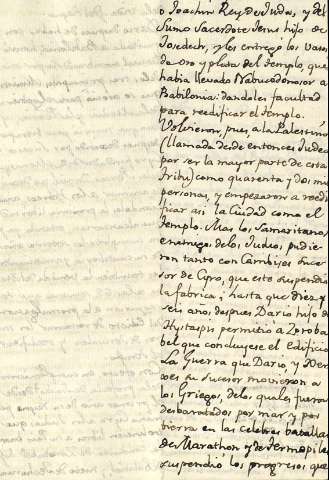 o Joachin Rey de Juda, y del
Sumo Sacerdote Jesus hijo de
Josedech, y les entrego los vasos
de oro y plata del Templo, que
habia llevado Nabucodonosor a
Babilonia: dandoles facultad
para reedificar el Templo.
Volvieron, pues, a la Palestina
(llamada desde entonces Judea
por ser la mayor parte de esta
Tribu) como quarenta y dos mil
personas, y empezaron a reedi
ficar asi la Ciudad como el
Templo. Mas los Samaritanos
enemigos de los Judios, pudie
ron tanto con Cambises succe
sor de Cyro, que este suspendio
la fabrica; hasta que diez y
seis años despues Dario hijo de
Hystaspis permitió a Zoroba
bel que concluyese el edificio
La Guerra que Dario y Xer
xes su sucesor movieron a
los Griegos, de los quales fueron
desbaratados por mar y por
tierra en las celebres batallas
de Marathon y de Termopilas
suspendio los progresos que